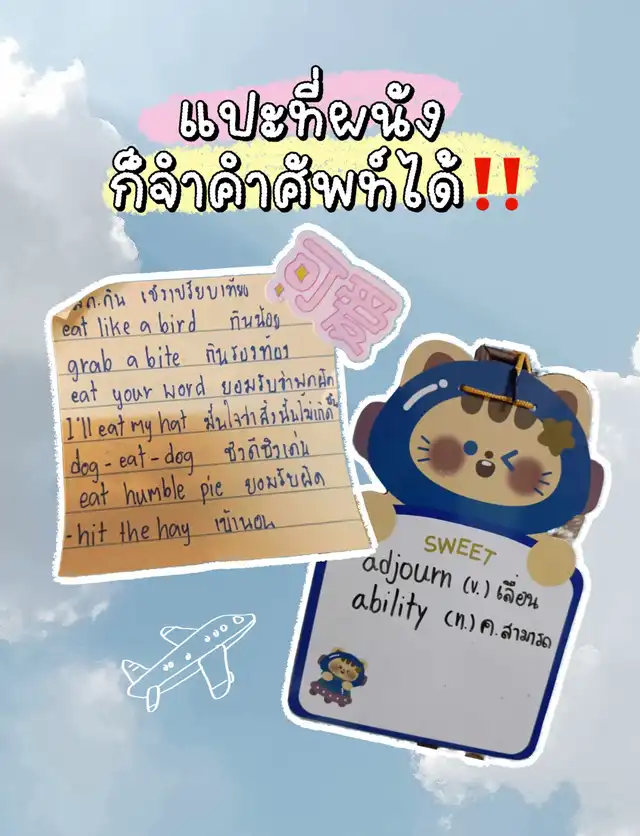 แปะที่ผนัง
ก็จำคำศัพท์ได้‼️
可爱
ศ.กิน เชิงเปรียบเทียบ
eat like a bird กินน้อย
grab a bite กินรองท้อง
eat your word ยอมรับว่าพูดผิด
I'll eat my hat มั่นใจว่าสิ่งนั้นไม่เกิดขึ้น
dog-eat-dog ชิงดีชิงเด่น
eat humble pie ยอมรับผิด
-hit the hay เข้านอน
SWEET
adjourn (v.) เลื่อน
ability (n.) ค.สามารถ